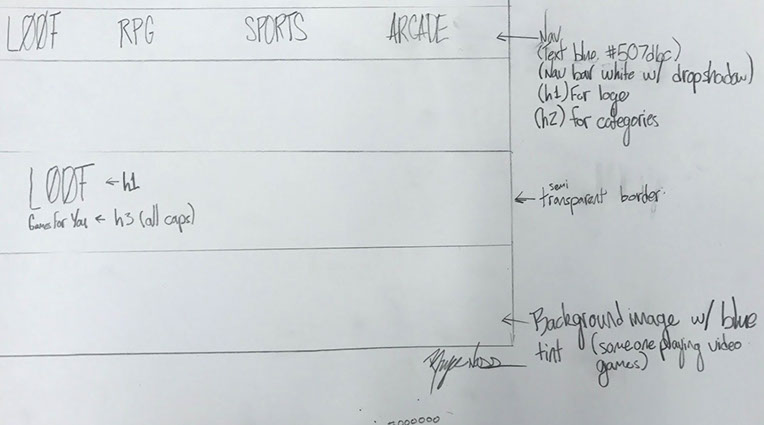 LØØF RPG SPORTS ARCADE
Nav
(Text blue #507dbc)
(Nav bar white w/ dropshadow)
(h1) For logo
(h2) for categories
LØØF ← h1
Games For You ← h3 (all caps)
semi
transparent border
Background image w/ blue
tint (someone playing video
games)